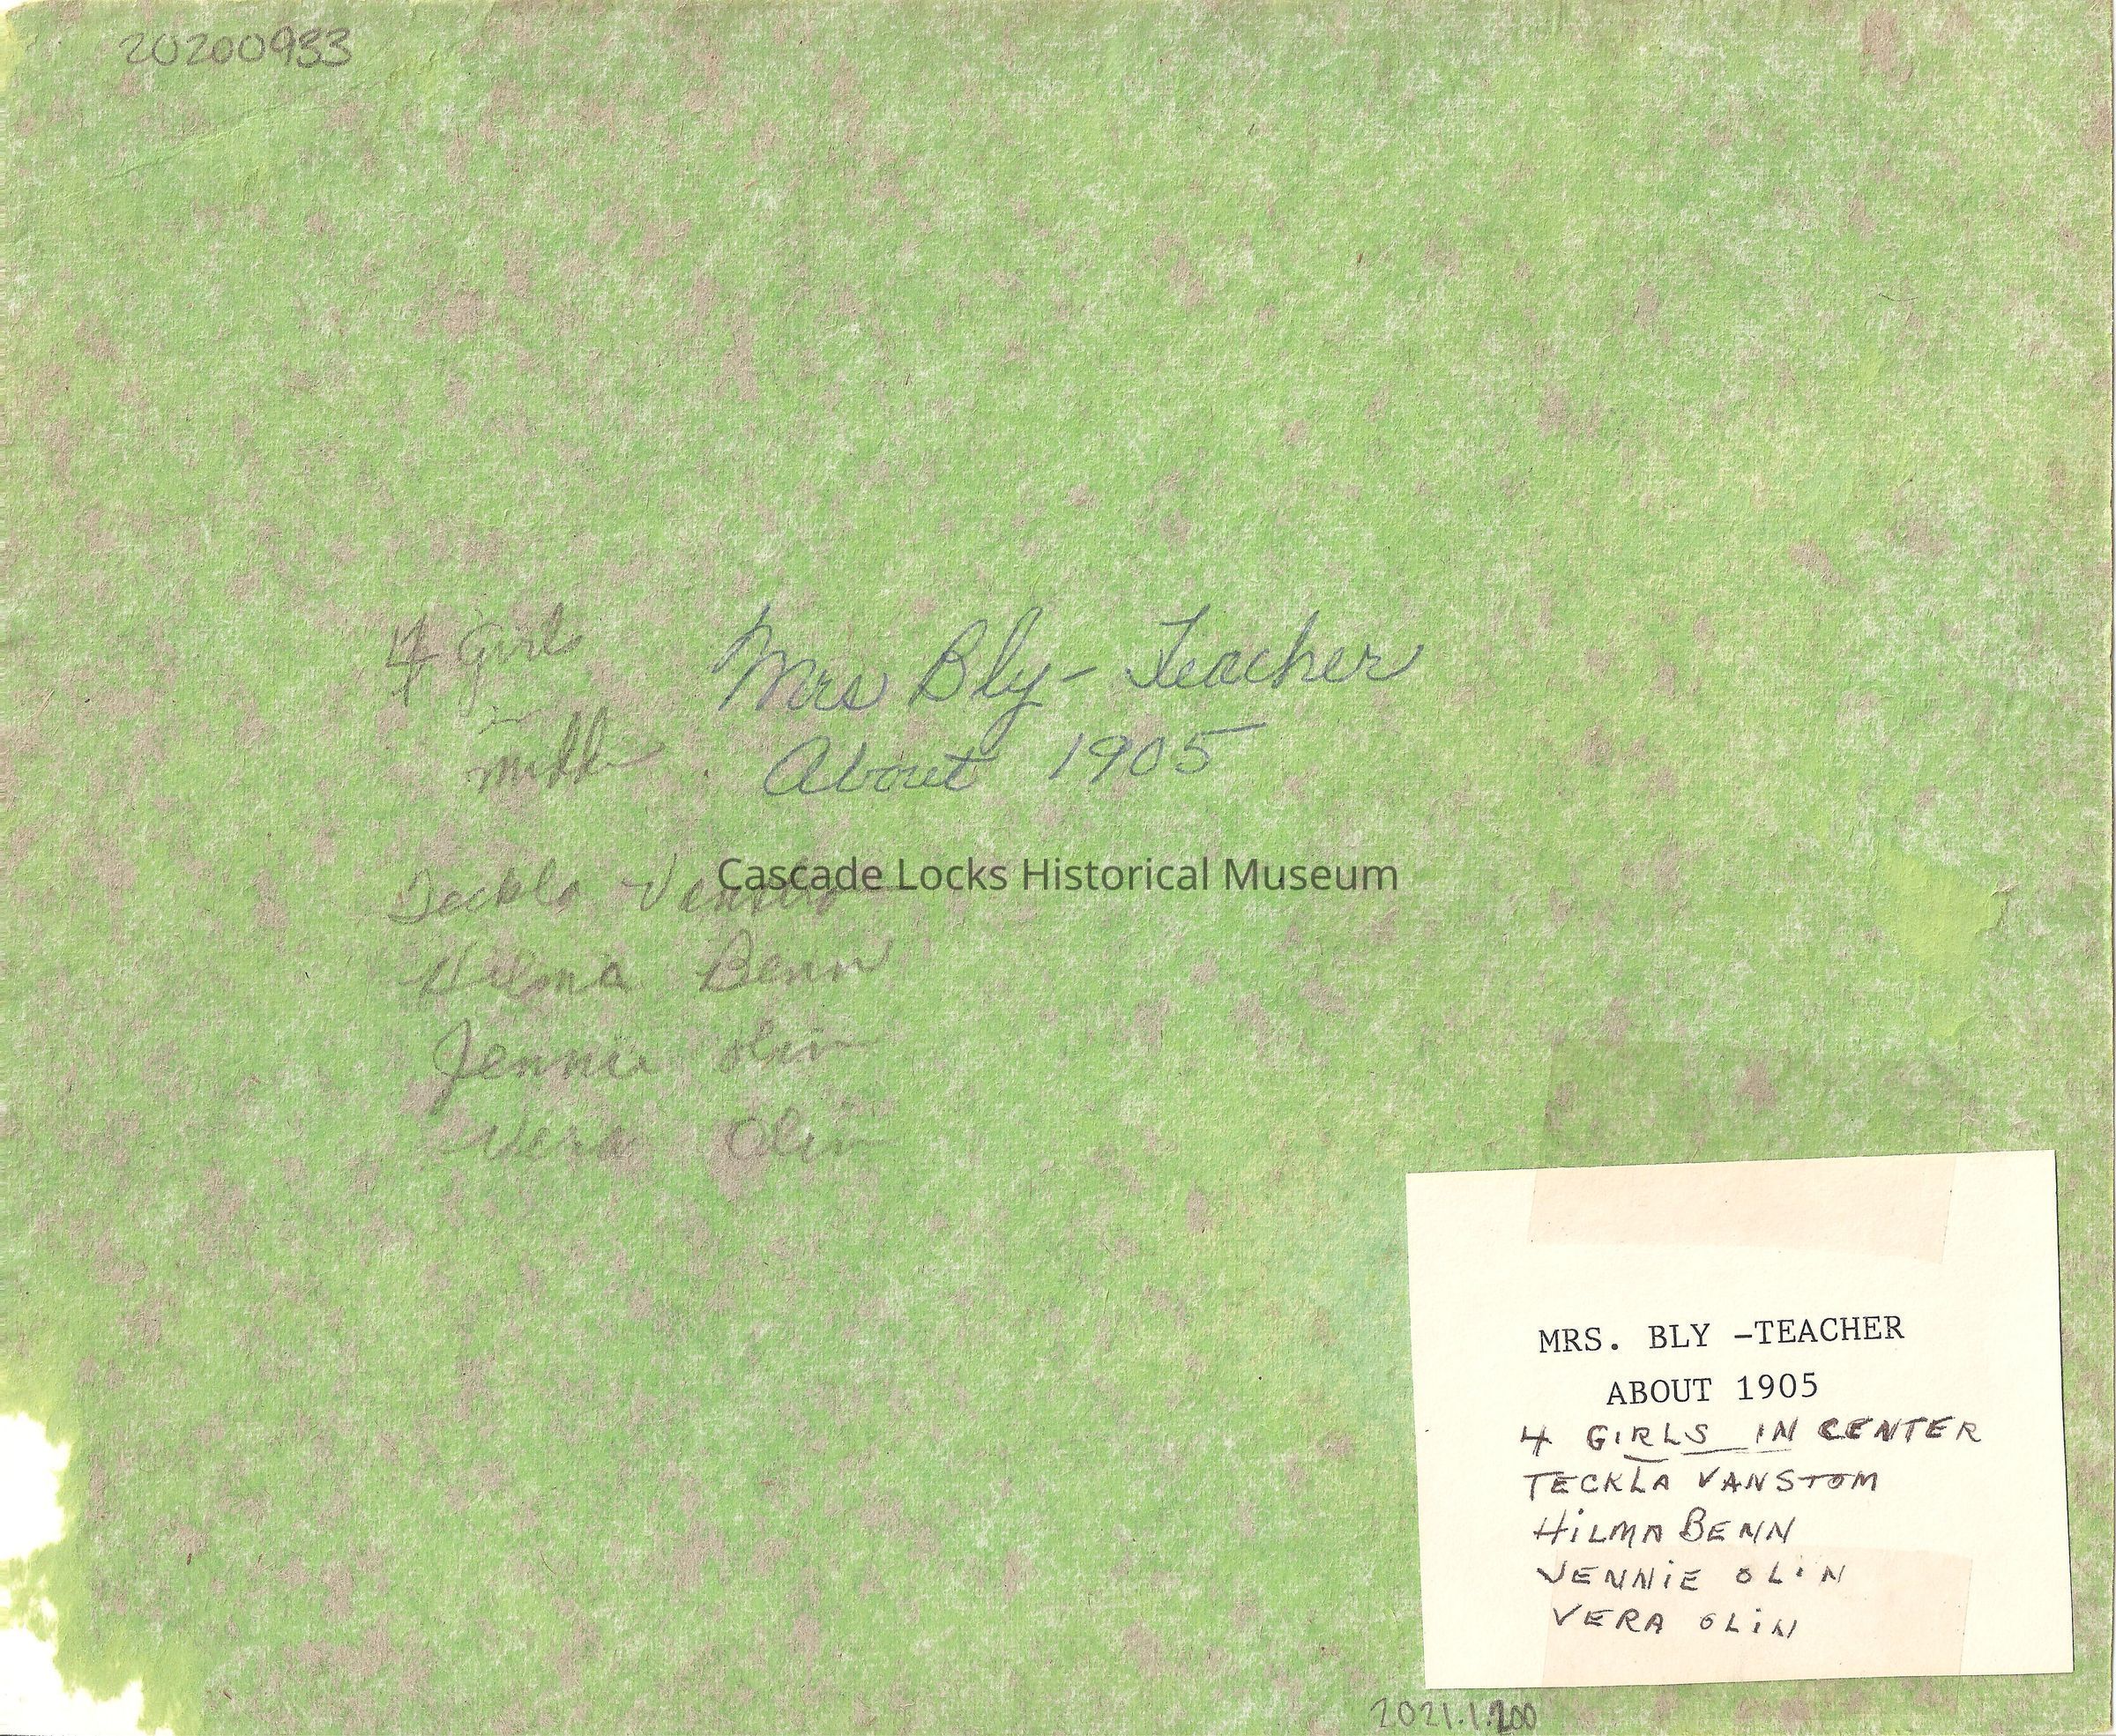 20200933
4 Girls
in
middle
Mrs Bly - Teacher
About 1905
Cascade Locks Historical Museum
Teckla
Hilma Benn
Jennie olin
Vera Olin
MRS. BLY -TEACHER
ABOUT 1905
4 GIRLS IN CENTER
TECKLA VANSTOM
HILMA BENN
JENNIE OLIN
VERA OLIN
2021.1.200